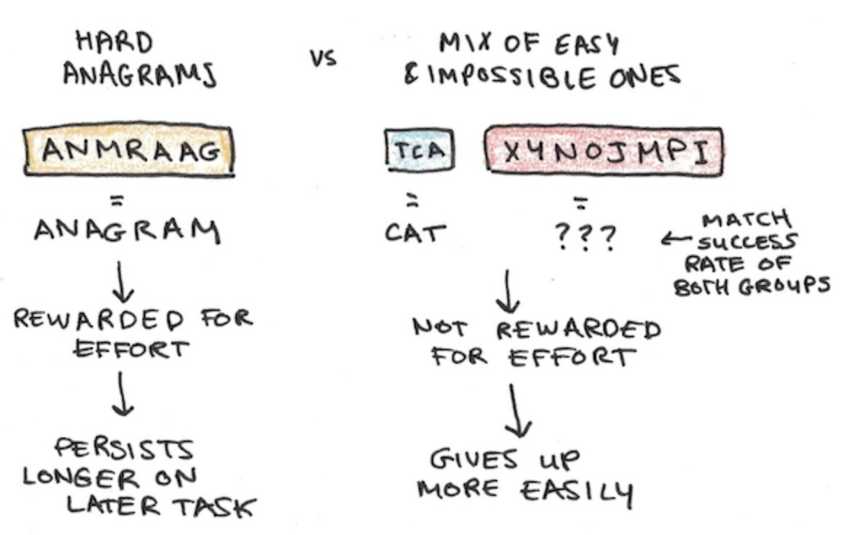 HARD
ANAGRAMS
VS
MIX OF EASY
& IMPOSSIBLE ONES
ANMRAAG
=
ANAGRAM
REWARDED FOR
EFFORT
PERSISTS
LONGER ON
LATER TASK
TCA
=
CAT
XYNOJMPI
=
???
MATCH
SUCCESS
RATE OF
BOTH GROUPS
NOT REWARDED
FOR EFFORT
GIVES UP
MORE EASILY